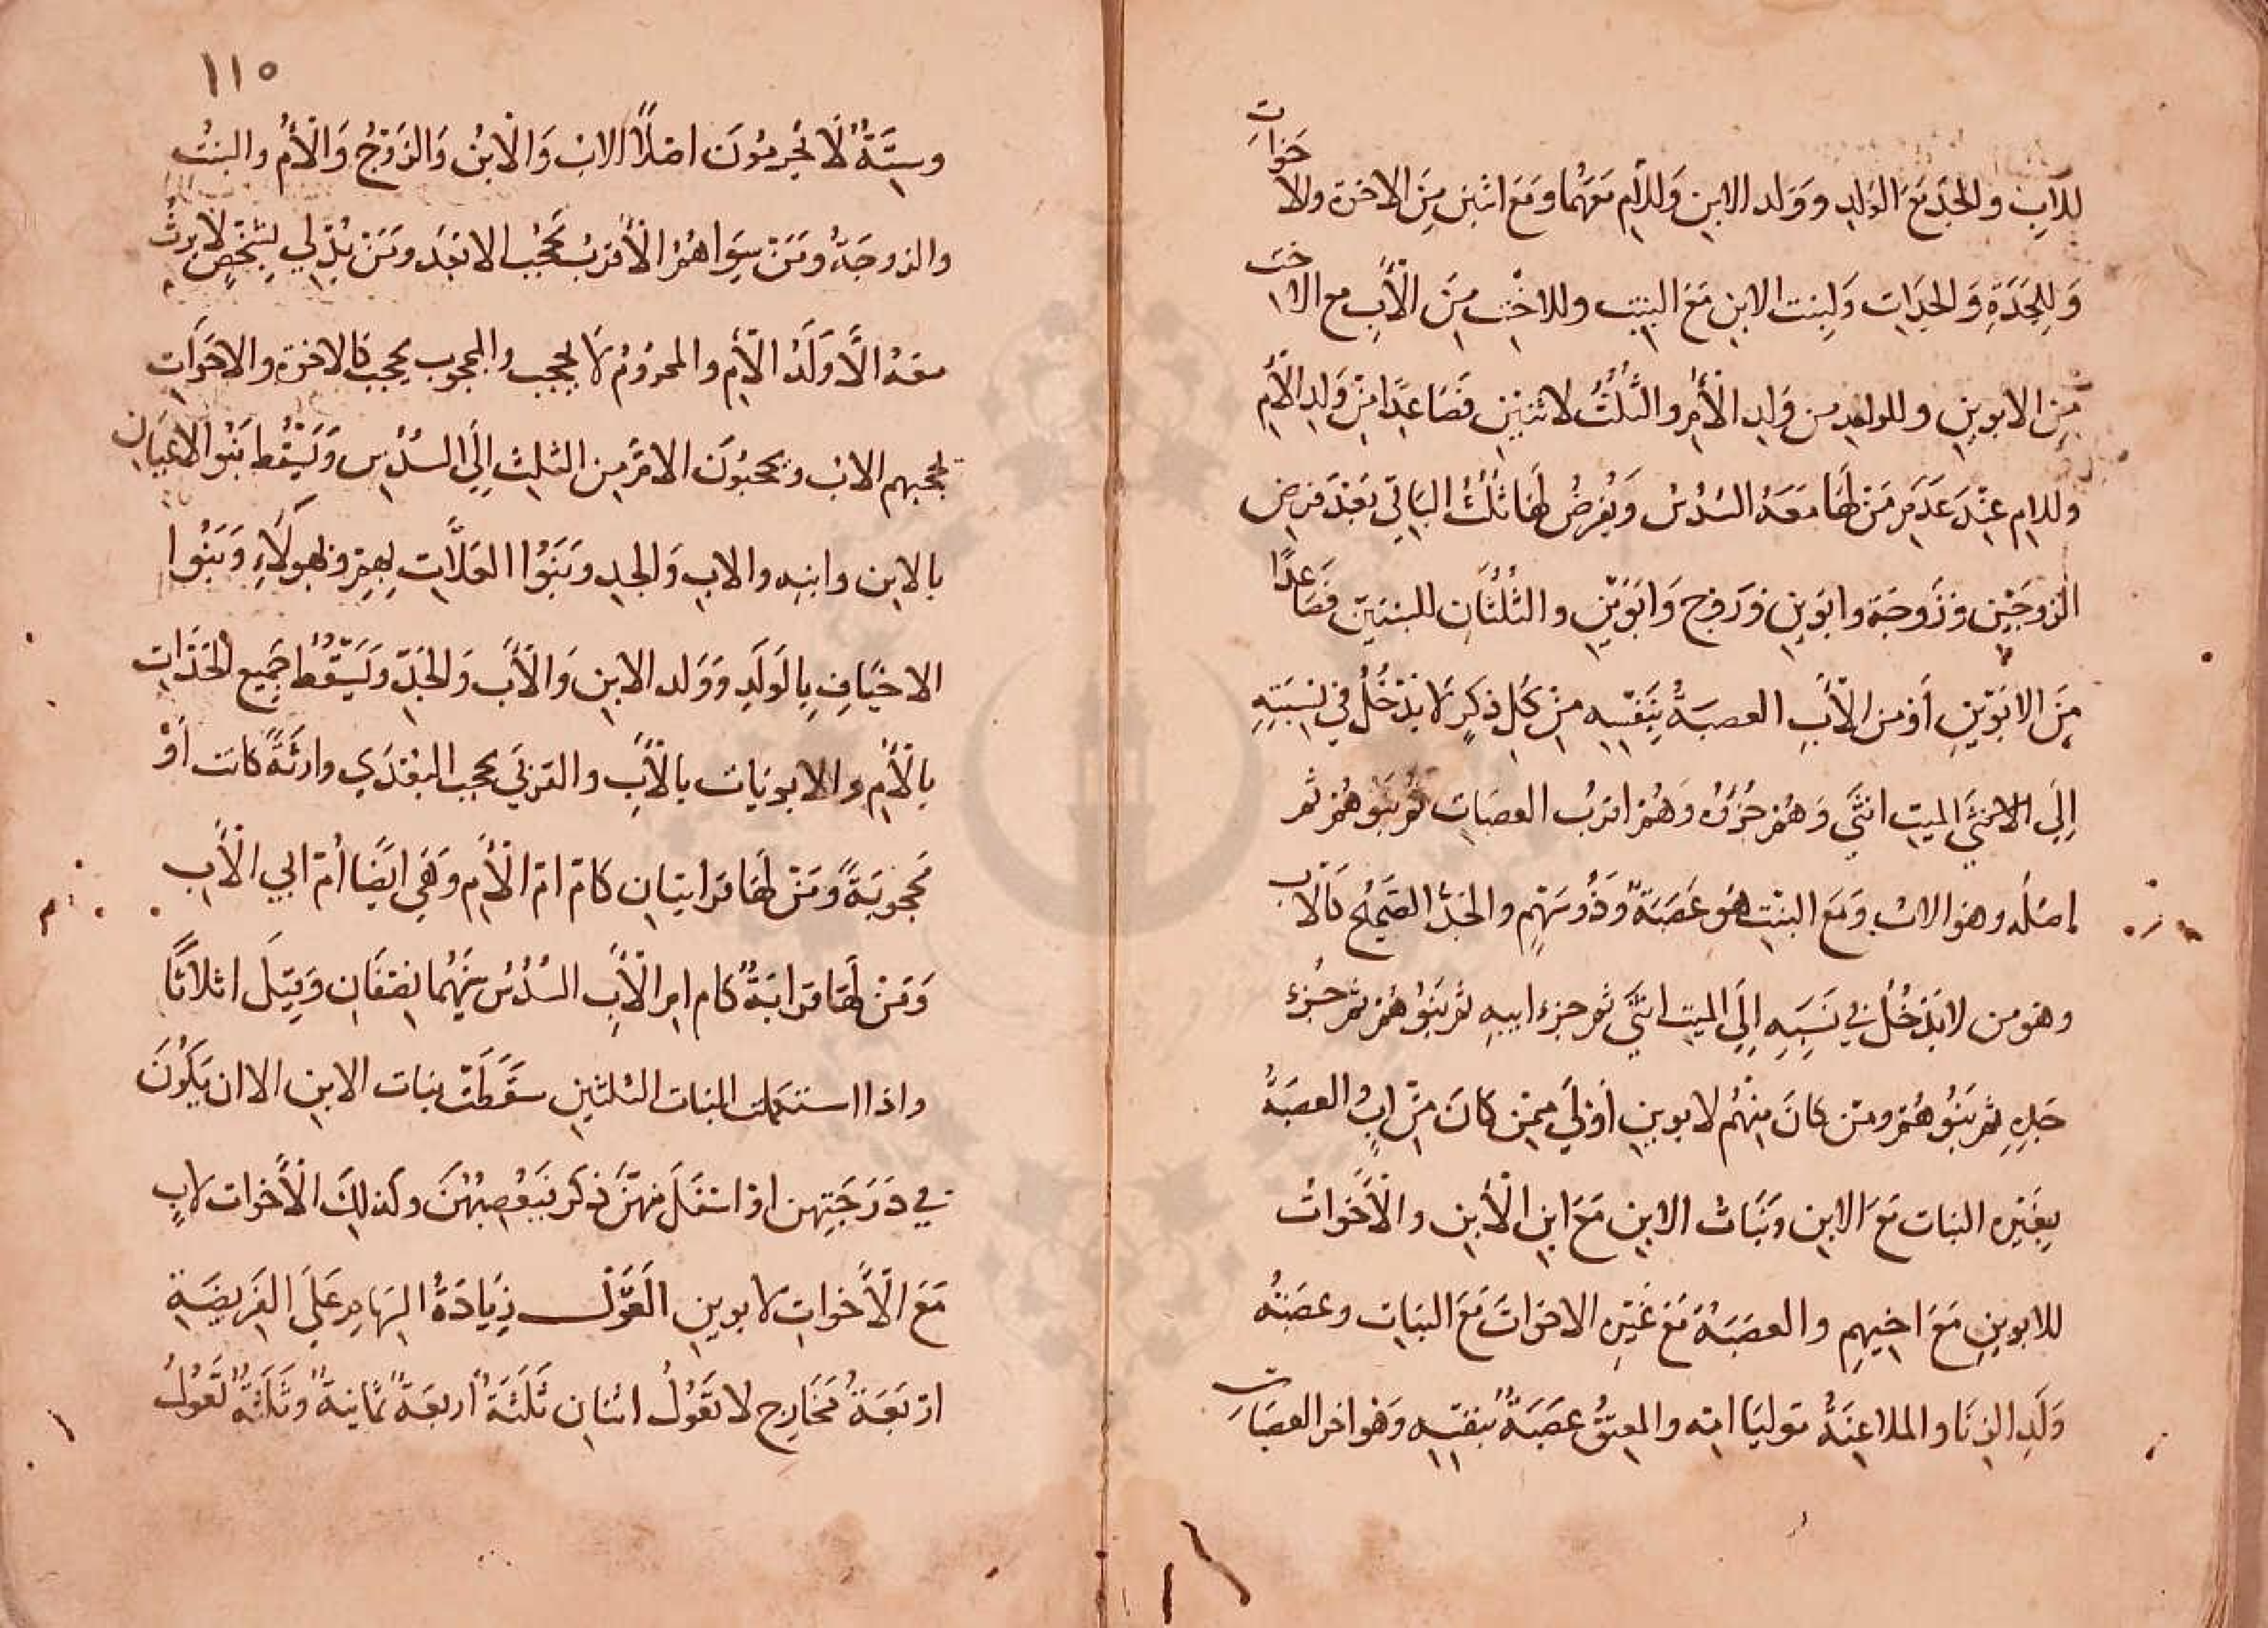 للاب والجد مع الولد وولد الابن وللام معهما ومع اثنين من الاخوة والاخوات
وللجدة والجدات ولبنت الابن مع البنت وللاخت من الأب مع الاخت
من الابوين وللواحد من ولد الأم والثلث لاثنين فصاعدا من ولد الأم
وللام عند عدم من لها معه السدس ويفرض لها ثلث الباقي بعد فرض
الزوجين وزوجة وابوين وزوج وابوين والثلثان للبنتين فصاعدا
من الابوين أو من الأب العصبة بنفسه من كل ذكر لا يدخل في نسبته
إلى الميت انثى وهم جزؤه وهم اقرب العصبات ثم بنوهم ثم
اصله وهو الاب ومع البنت هو عصبة وذو سهم والجد الصحيح كالأب
وهو من لا يدخل في نسبه إلى الميت انثى ثم جزء ابيه ثم بنوهم ثم جزء
جده ثم بنوهم ومن كان منهم لابوين أولى ممن كان من اب العصبة
بغيره البنات مع الابن وبنات الابن مع ابن الأبن والأخوات
للابوين مع اخيهم والعصبة مع غيره الاخوات مع البنات وعصبته
ولد الزنا والملاعنة موليا امه والمعتق عصبة بنفسه وهو اخر العصبات
١١٥
وستة لا يحرمون اصلا الاب والابن والزوج والأم والبنت
والزوجة ومن سواهم الأقرب يحجب الابعد ومن يدلي لشخص لا يرث
معه الا ولد الأم والمحروم لا يحجب والمحجوب يحجب كالاخوة والاخوات
يحجبهم الاب ويحجبون الام من الثلث إلى السدس ويسقط بنو الاعيان
بالابن وابنه والاب والجد وبنوا العلات بهم وبهولاء وبنوا
الاخياف بالولد وولد الابن والأب والجد ويسقط جميع الجدات
بالأم والابويات بالأب والقربى يحجب البعدي وارثة كانت أو
محجوبة ومن لها قرابتان كام ام الأم وهي ايضا أم ابي الأب
ومن لها قرابة كام ام الأب السدس بينهما نصفان وقيل اثلاثا
واذا استكملت البنات الثلثين سقطت بنات الابن الا ان يكون
في درجتهن او اسفل منهن ذكر فيعصبهن وكذلك الأخوات لاب
مع الأخوات لابوين العول زيادة السهام على الفريضة
اربعة مخارج لا تعول اثنان ثلثة أربعة ثمانية وثلثة تعول